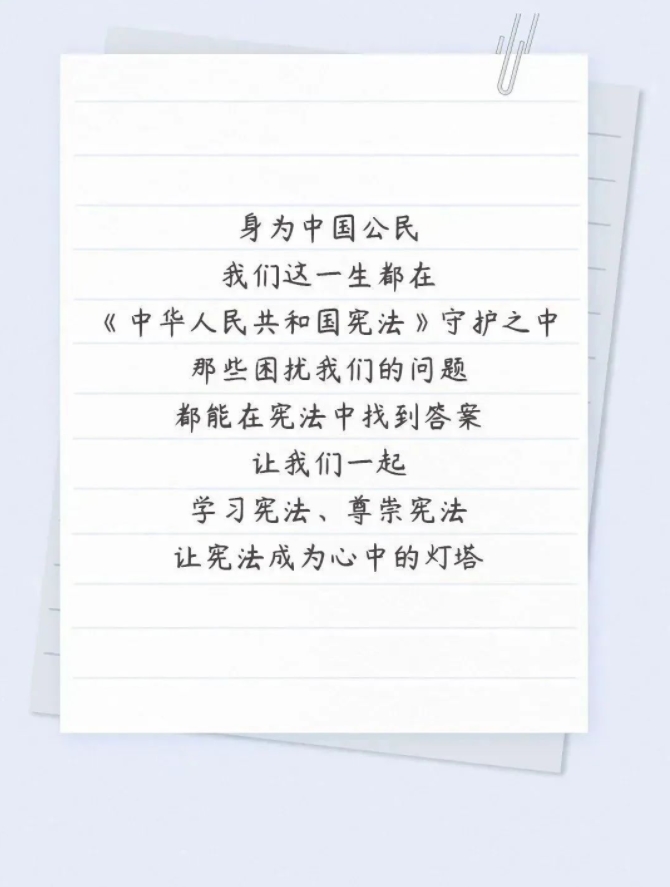 身为中国公民
我们这一生都在
《中华人民共和国宪法》守护之中
那些困扰我们的问题
都能在宪法中找到答案
让我们一起
学习宪法、尊崇宪法
让宪法成为心中的灯塔